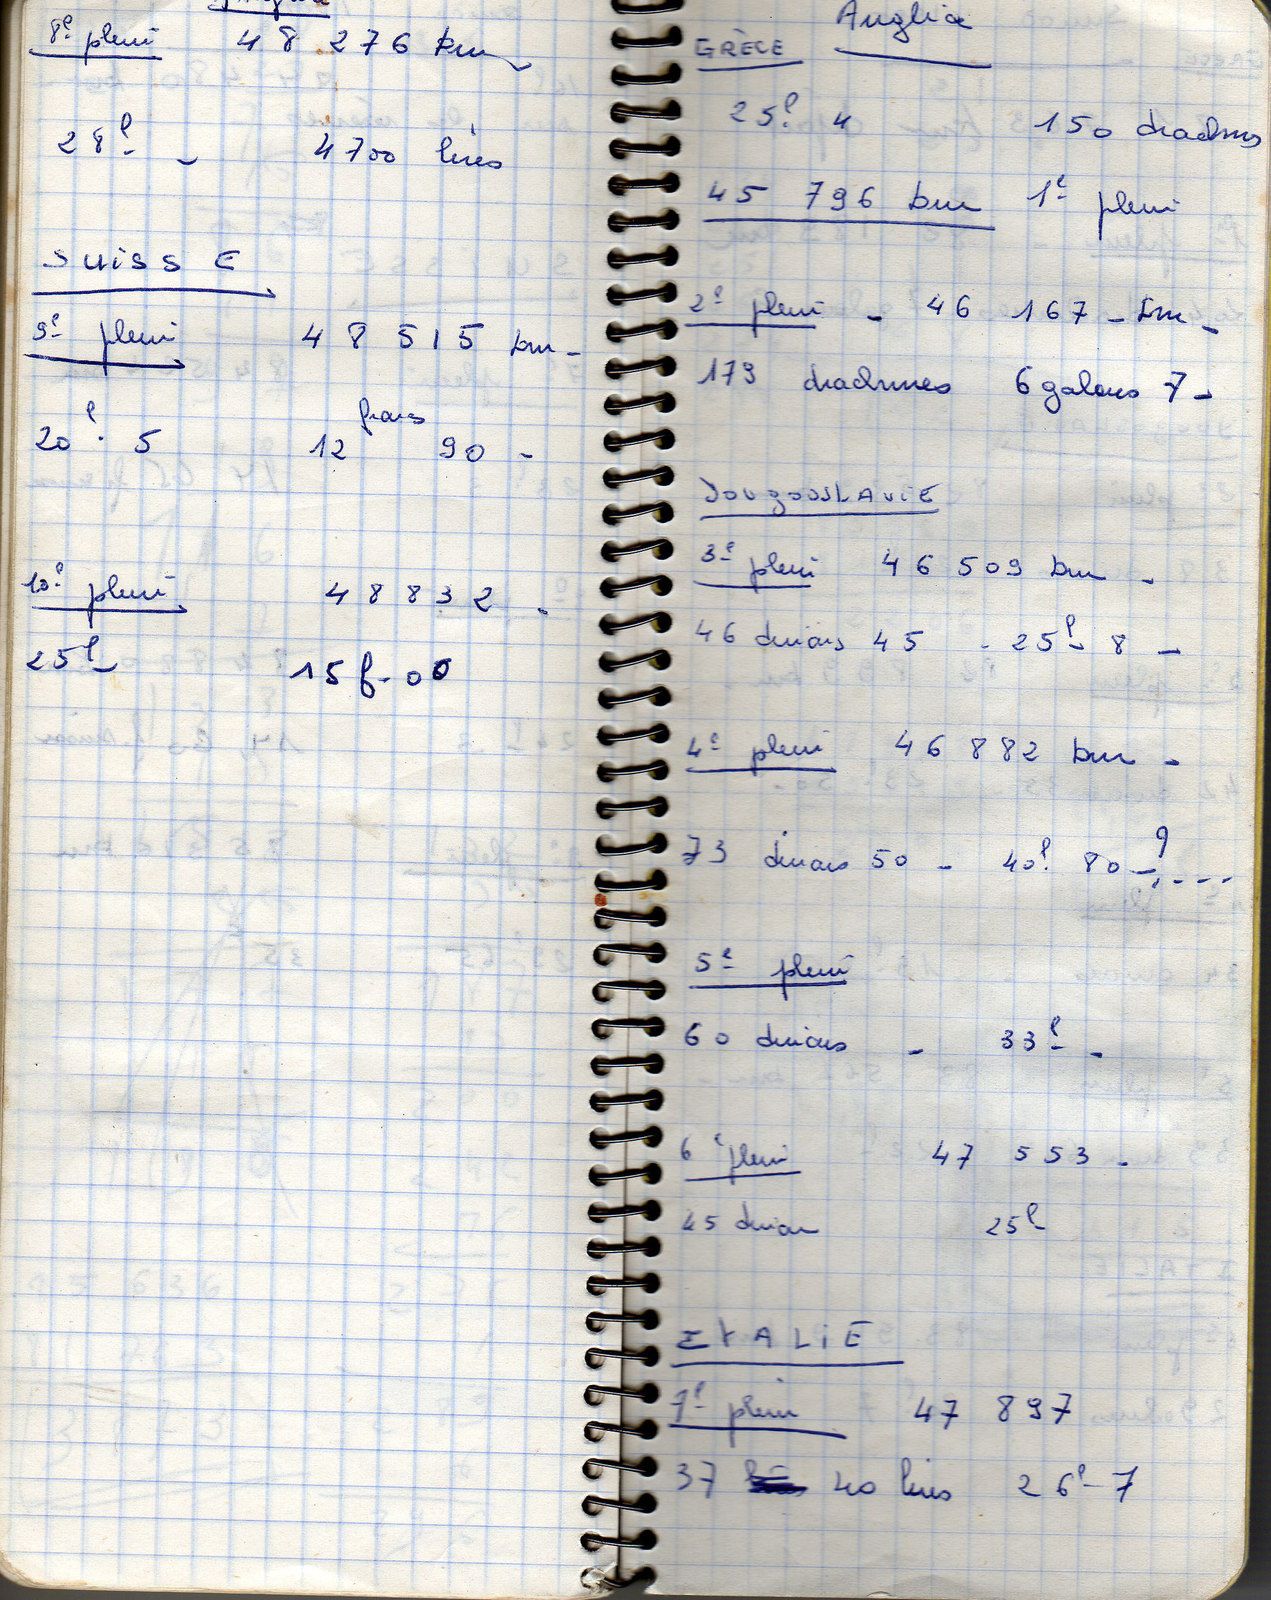 8e plein 48 276 km
28l - 4700 lires
SUISSE
9e plein 48 515 km -
francs
20l. 5 12 90 -
10e plein 48832 -
25l - 15 f. 00
Anglia
GRÈCE
25l. 4 150 drachmes
45 796 km 1e plein
2e plein - 46 167 - km -
179 drachmes 6 galons 7 -
YOUGOOSLAVIE
3e plein 46 509 km -
46 dinars 45 - 25l - 8 -
4e plein 46 882 km -
73 dinars 50 - 40l. 80 - ?
5e plein
60 dinars - 33l -
6e plein 47 553 -
45 dinar 25l -
ITALIE
7e plein 47 897
37 40 lires 26l - 7